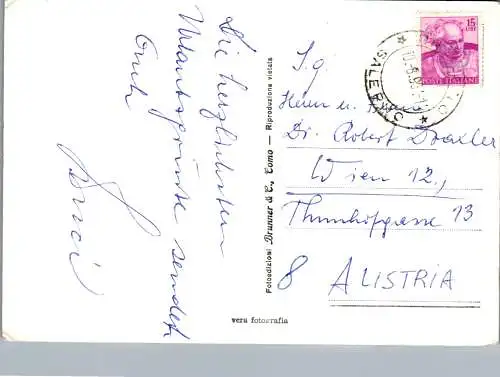 Die herzlichsten
Urlaubsgrüsse sendet
Euch
Fotoedizioni Brunner & C., Como — Riproduzione vietata
vera fotografia
15
LIRE
POSTE ITALIANE
SALERNO
S.g.
Herrn u.
Dr. Robert Draxler
Wien 12.,
Thunhofgasse 13
8 AUSTRIA